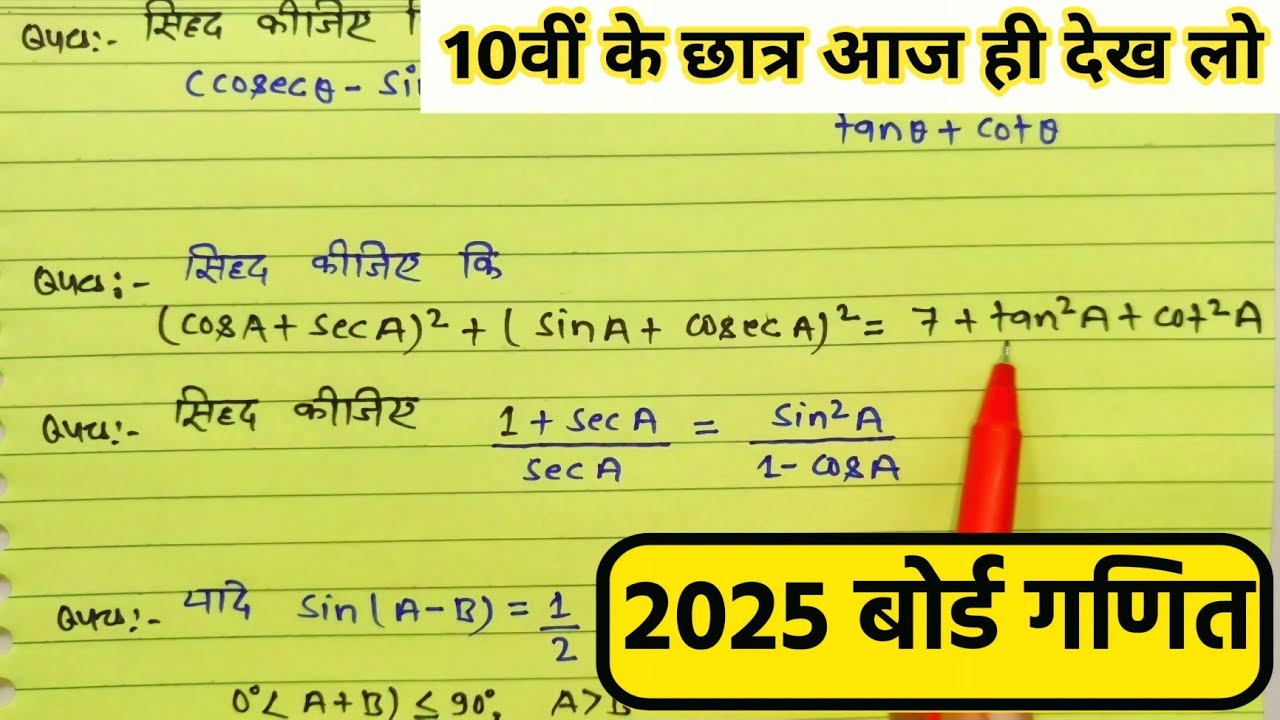 Ques:- सिद्ध कीजिए
10वीं के छात्र आज ही देख लो
(cosecθ - sin
tanθ + cotθ
Ques:- सिद्ध कीजिए कि
(cosA + secA)² + (sinA + cosecA)² = 7 + tan²A + cot²A
Ques:- सिद्ध कीजिए (1 + secA)/(secA) = (sin²A)/(1 - cosA)
Ques:- यदि sin(A-B) = 1/2
0°< A+B) ≤ 90°, A>B
2025 बोर्ड गणित